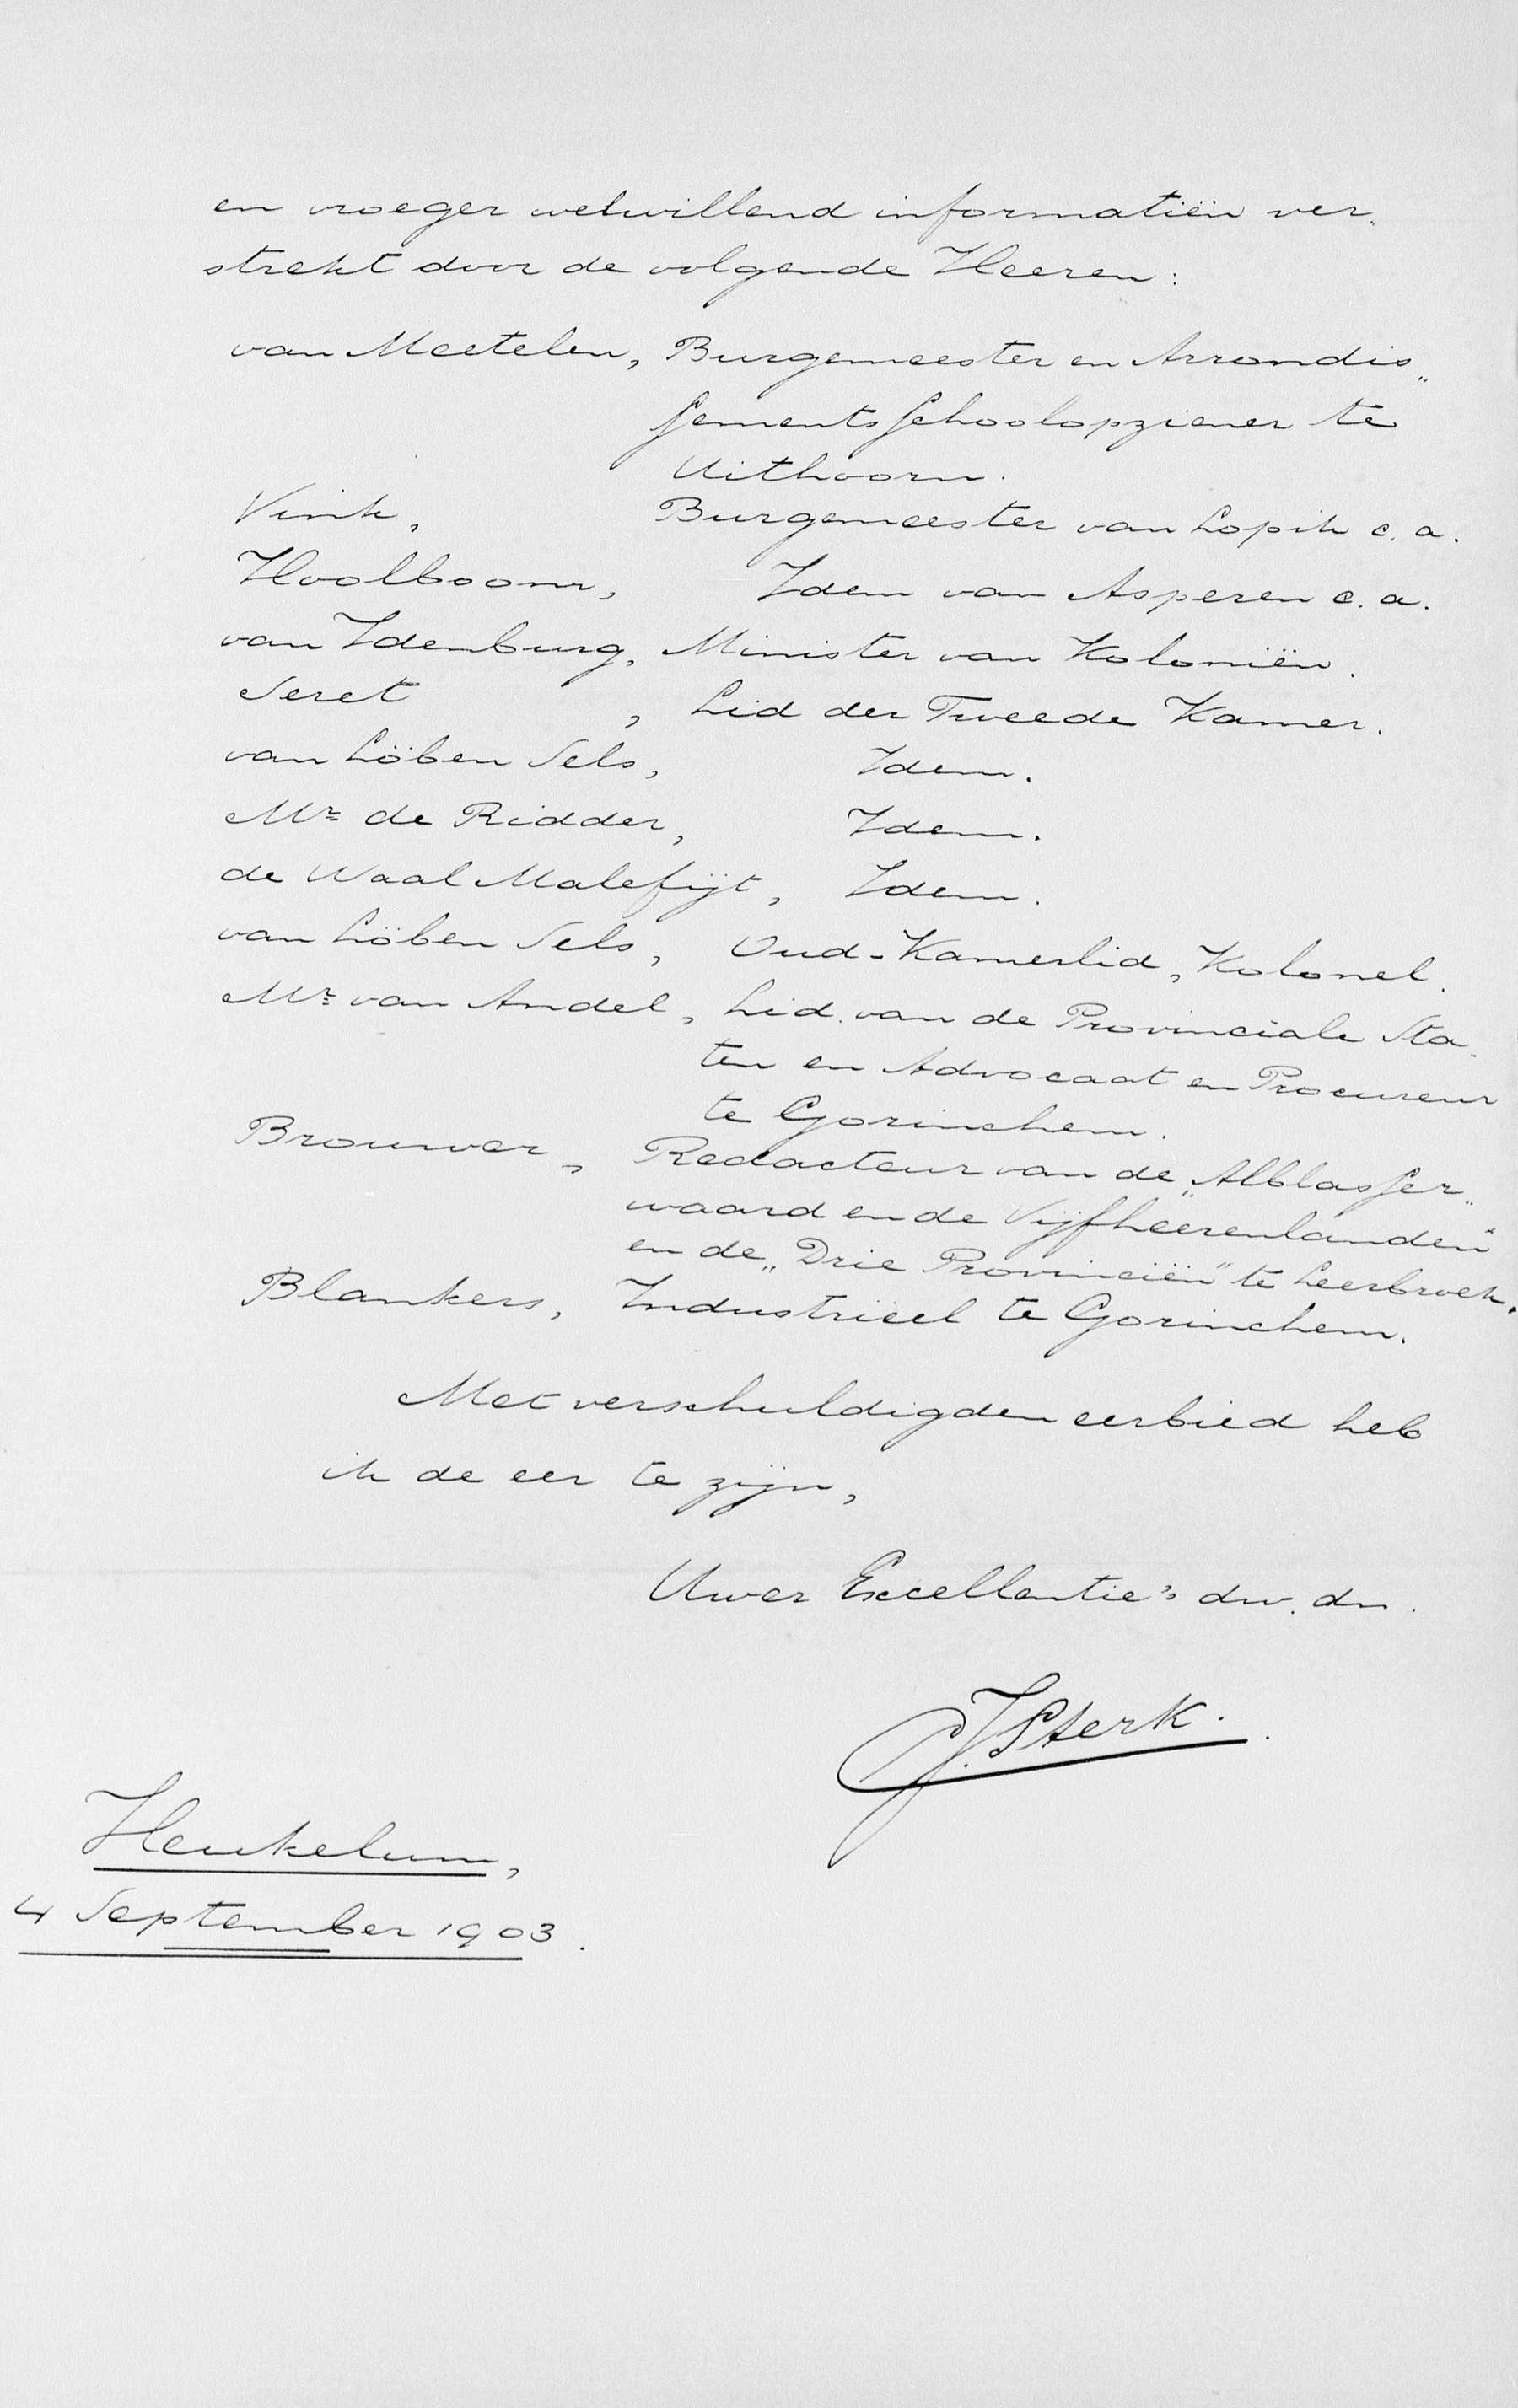 en vroeger welwillend informatiën ver„
strekt door de volgende Heeren:
van Meetelen, Burgemeester en Arrondis„
sements schoolopziener te
Uithoorn.
Vink, Burgemeester van Lopik c. a.
Hoolboom, Idem van Asperen c. a.
van Idenburg, Minister van Koloniën.
Seret, Lid der Tweede Kamer.
van Löben Sels, Idem.
Mr de Ridder, Idem.
de Waal Malefijt, Idem.
van Löben Sels, Oud-Kamerlid, Kolonel.
Mr van Andel, Lid van de Provinciale Sta„
ten en Advocaat en Procureur
te Gorinchem.
Brouwer, Redacteur van de „Alblasser„
waard en de Vijfheerenlanden"
en de „Drie Provinciën" te Leerbroek.
Blankers, Industrieel te Gorinchem.
Met verschuldigden eerbied heb
ik de eer te zijn,
Uwer Excellentie's dw. dn.
J. Sterk.
Heukelum,
4 September 1903.